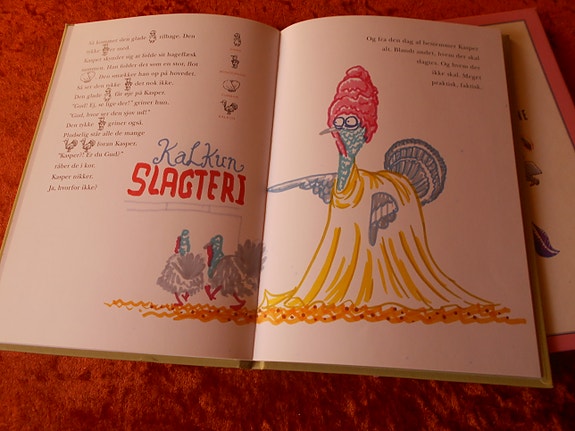 Så kommer den glade tilbage. Den
tykke er med.
Kasper skynder sig at folde sit hageflæsk
sammen. Han folder det som en stor, flot
Den smækker han op på hovedet.
Så ser den tykke det nok ikke.
Den glade får øje på Kasper.
"Gud! Ej, se lige der!" griner hun.
"Gud, hvor ser den sjov ud!"
Den tykke griner også.
Pludselig står alle de mange
foran Kasper.
"Kasper?! Er du Gud?"
råber de i kor.
Kasper nikker.
Ja, hvorfor ikke?
KalKun
SLAGTERI
Og fra den dag af bestemmer Kasper
alt. Blandt andet, hvem der skal
slagtes. Og hvem der
ikke skal. Meget
praktisk, faktisk.
NE